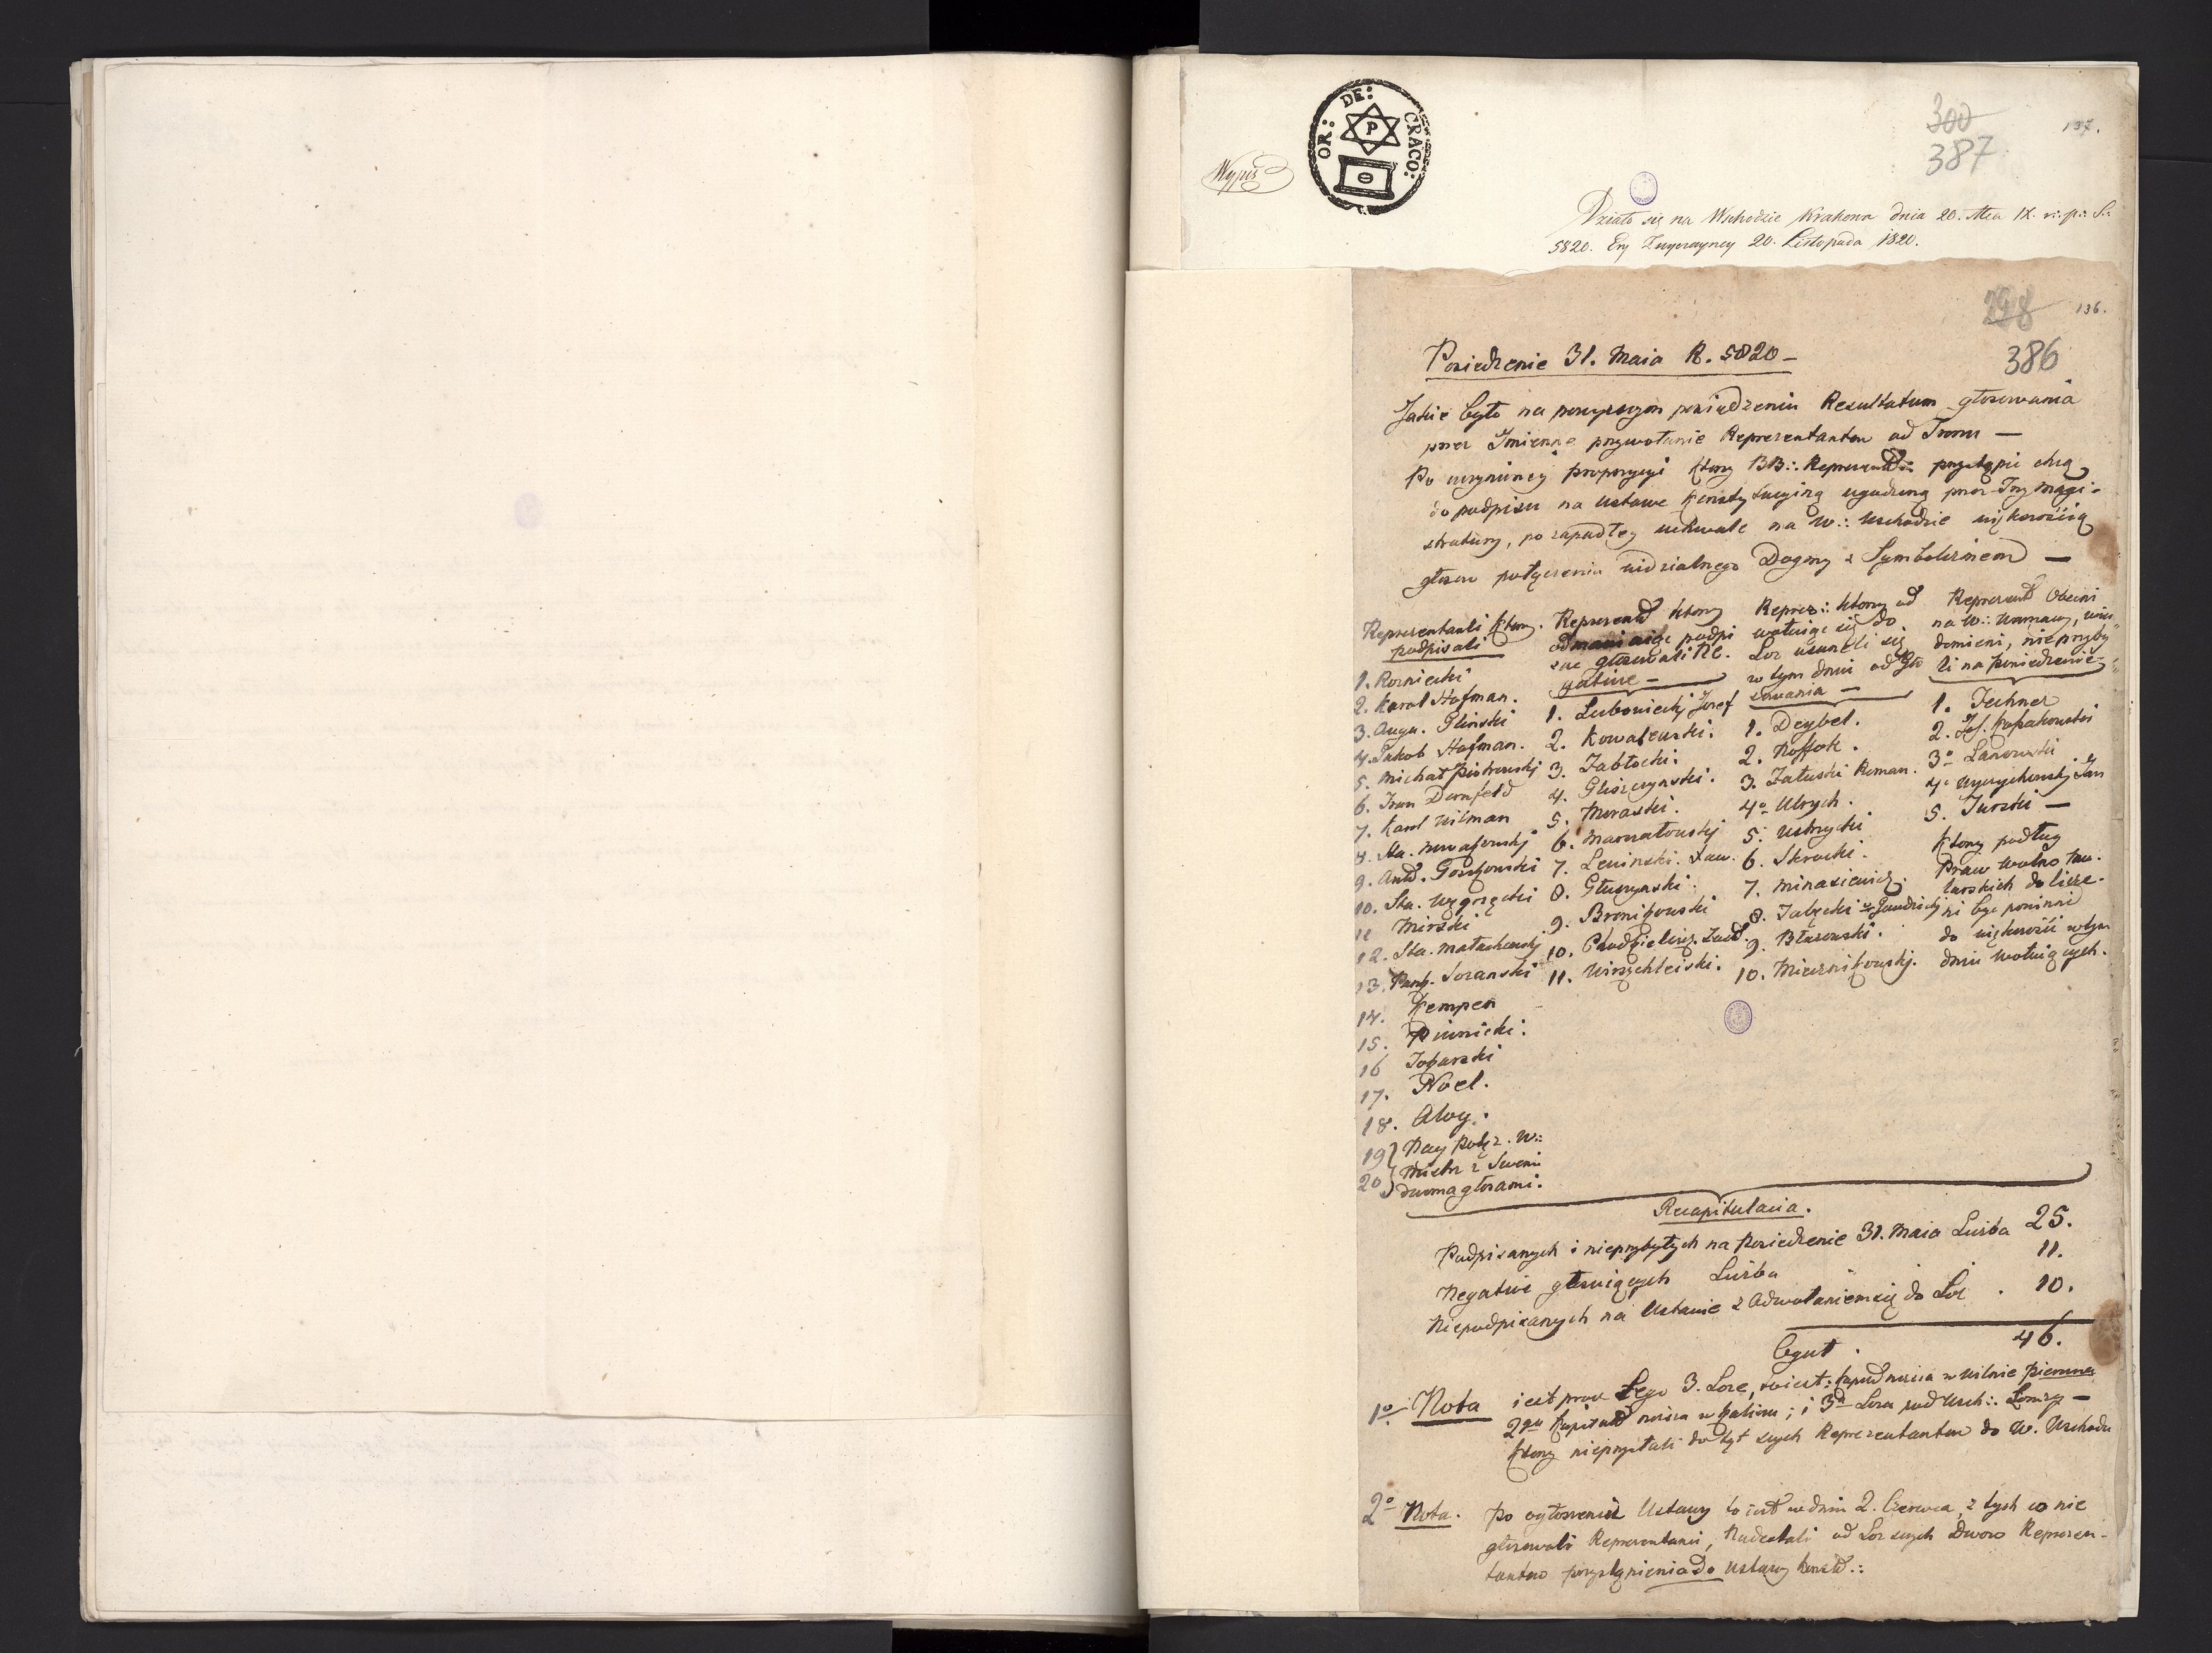 OR: DE: CRACO:
P
Wypis
300
387
137.
Działo się na Wschodzie Krakowa dnia 20. Mca IX. r: p: S:
5820. Ery Zwyczayney 20. Listopada 1820.
298
136.
386
Posiedzenie 31. Maia R. 5820 –
Jakie było na powyższym posiedzeniu Resultatum głosowania
przez Imienne przywołanie Reprezentantow od Tronu —
Po uczynioney propozycyi ktorzy BB∴ Reprezent∴ przystąpić chcą
do podpisu na Ustawe Konstytucyiną ugodzoną przez Trzy Magi-
stratury, po zapadłey uchwale na W∴ Wschodzie większością
głosow połączenia widzialnego Dogmy z Symbolizmem —
Reprezentanci ktorzy
podpisali
1. Rozniecki
2. Karol Hofman.
3. Augu. Glinski
4. Jakob Hofman.
5. Michał Piotrowski
6. Iwan Dernfeld
7. Karol Wilman
8. Sta.
9. Ant. Goszkowski
10. Sta. Węgrzecki
11 Mirski
12. Sta. Małachowski
13. Soranski
14. Kempen
15. Piwnicki.
16
17. Noel.
18. Aloy.
19 Nay Połącz. W∴
20 Mistrz z Swemi
dwoma głosami.
Reprezent ktorzy
odmawiaiąc podpi
su głosowali Ne.
gatiue –
1. Lubowiecky Josef
2. Kowalewski.
3. Jabłocki.
4. Gliszczynski.
5. Moraski.
6. Marnałowskj
7. Lewinski. Xaw.
8. Głuszynski.
9. Bronikowski
10.
11.
Reprez∴ ktorzy od
wołuiąc się do
Loz usuneli się
w tym dniu od gło
sowania —
1. Deybel.
2. Kossok.
3. Załuski Roman.
4o Ulrych.
5. Ustrycki
6. Skrocki.
7. Minasiewicz.
8.
9. Błazowski.
10. Miecznikowskj.
Reprezent Obecni
na W∴ Warszawy, uwia-
domieni, nieprzyby
li na posiedzenie
1. Jechner
2. Jos.
3o Lasowski
4o Jan
5. Turski —
ktorzy podług
Praw Wolno Mu-
larskich dolicze-
ni być powinni
do większości w tym
dniu wotuiących.
Recapitulacia.
Podpisanych i nieprzybyłych na Posiedzenie 31. Maia Liczba 25.
Negatiue głosuiących Liczba 11.
Niepodpisanych na Ustawie z Odwołaniem się do Loz . 10.
Ogut. 46.
1o Nota iest procz tego 3. Loze, to iest: w Wilnie Pierwsza
2ga w Kaliszu; i 3a Loza pod Wsch∴ Łomzy —
ktorzy nieprzysłali dotąt swych Reprezentantow do W. Wschodu
2o Nota. Po ogłoszeniu Ustawy to iest w dniu 2. Czerwca, z tych co nie
głosowali Reprezentanci, Nadesłali od Loz swych Dwoch Reprezen-
tantow przystąpienia do Ustawy Konst∴